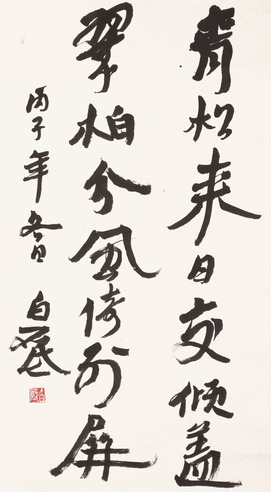 青松来日交倾盖
翠柏分風倚列屏
丙子年冬月 白砥